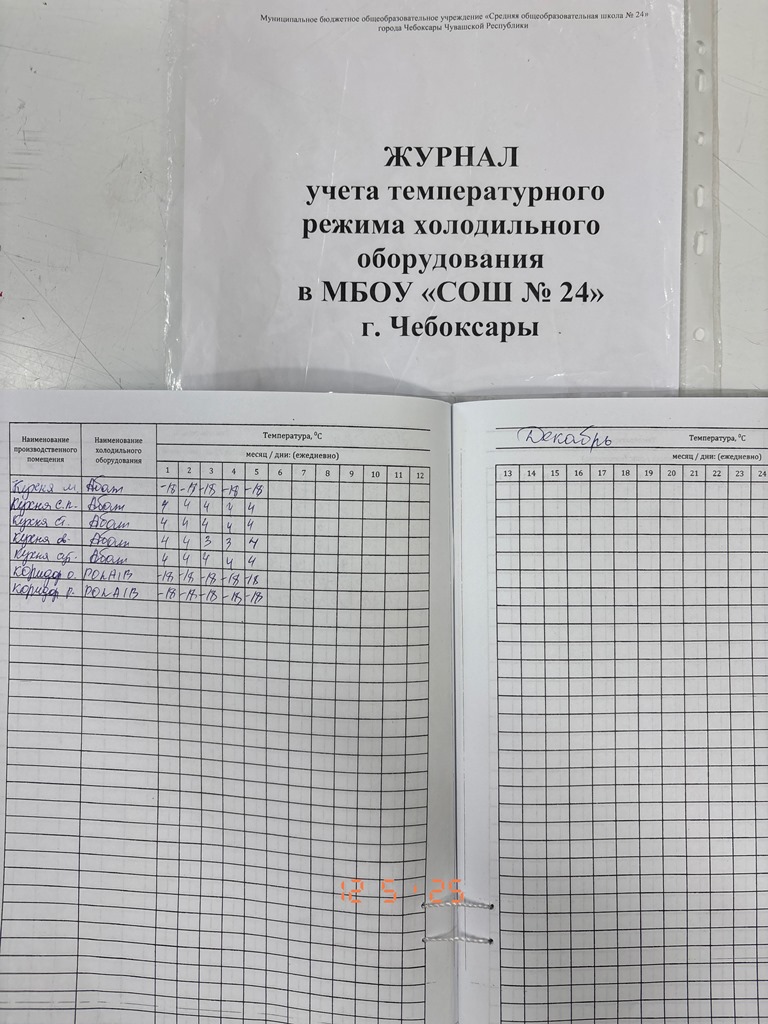 Муниципальное бюджетное общеобразовательное учреждение «Средняя общеобразовательная школа № 24»
города Чебоксары Чувашской Республики
ЖУРНАЛ
учета температурного
режима холодильного
оборудования
в МБОУ «СОШ № 24»
г. Чебоксары
Наименование производственного помещения
Наименование холодильного оборудования
Температура, °С
месяц / дни: (ежедневно)
1 2 3 4 5 6 7 8 9 10 11 12
Кухня м Абат -18 -18 -18 -18 -18
Кухня с.п. Абат 4 4 4 4
Кухня Абат 4 4 4 4 4
Кухня Абат 4 4 3 3 4
Кухня Абат 4 4 4 4 4
Коридор POLAIR -18 -18 -18 -18 -18
Коридор POLAIR -18 -18 -18 -18 -18
Декабрь
Температура, °С
месяц / дни: (ежедневно)
13 14 15 16 17 18 19 20 21 22 23 24
12 5 '25